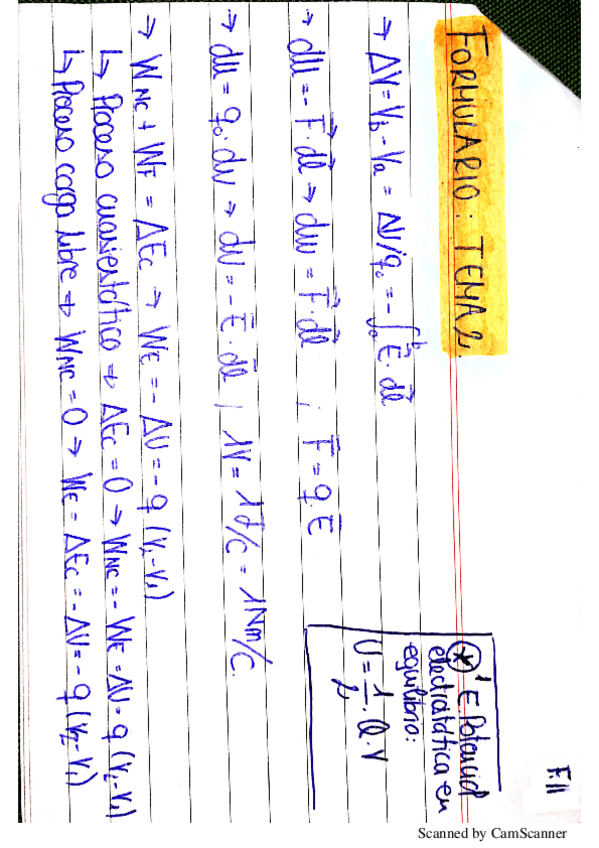 FII
FORMULARIO: TEMA 2.
→ ΔV = Vb - Va = ΔU/q₀ = -∫ₐᵇ E⃗·dl⃗
→ dU = -F⃗·dl⃗ → dW = F⃗·dl⃗ ; F⃗ = q·E⃗
→ dU = q₀·dV → dV = -E⃗·dl⃗ ; 1V = 1J/C = 1Nm/C.
→ WNC + WE = ΔEc → WE = -ΔU = -q (V₂-V₁)
↳ Proceso cuasiestático → ΔEc = 0 → WNC = -WE = ΔU = q (V₂-V₁)
↳ Proceso carga libre → WNC = 0 → WE = ΔEc = -ΔU = -q (V₂-V₁)
* E Potencial
electrostática en
equilibrio:
U = 1/2 · Q · V
Scanned by CamScanner